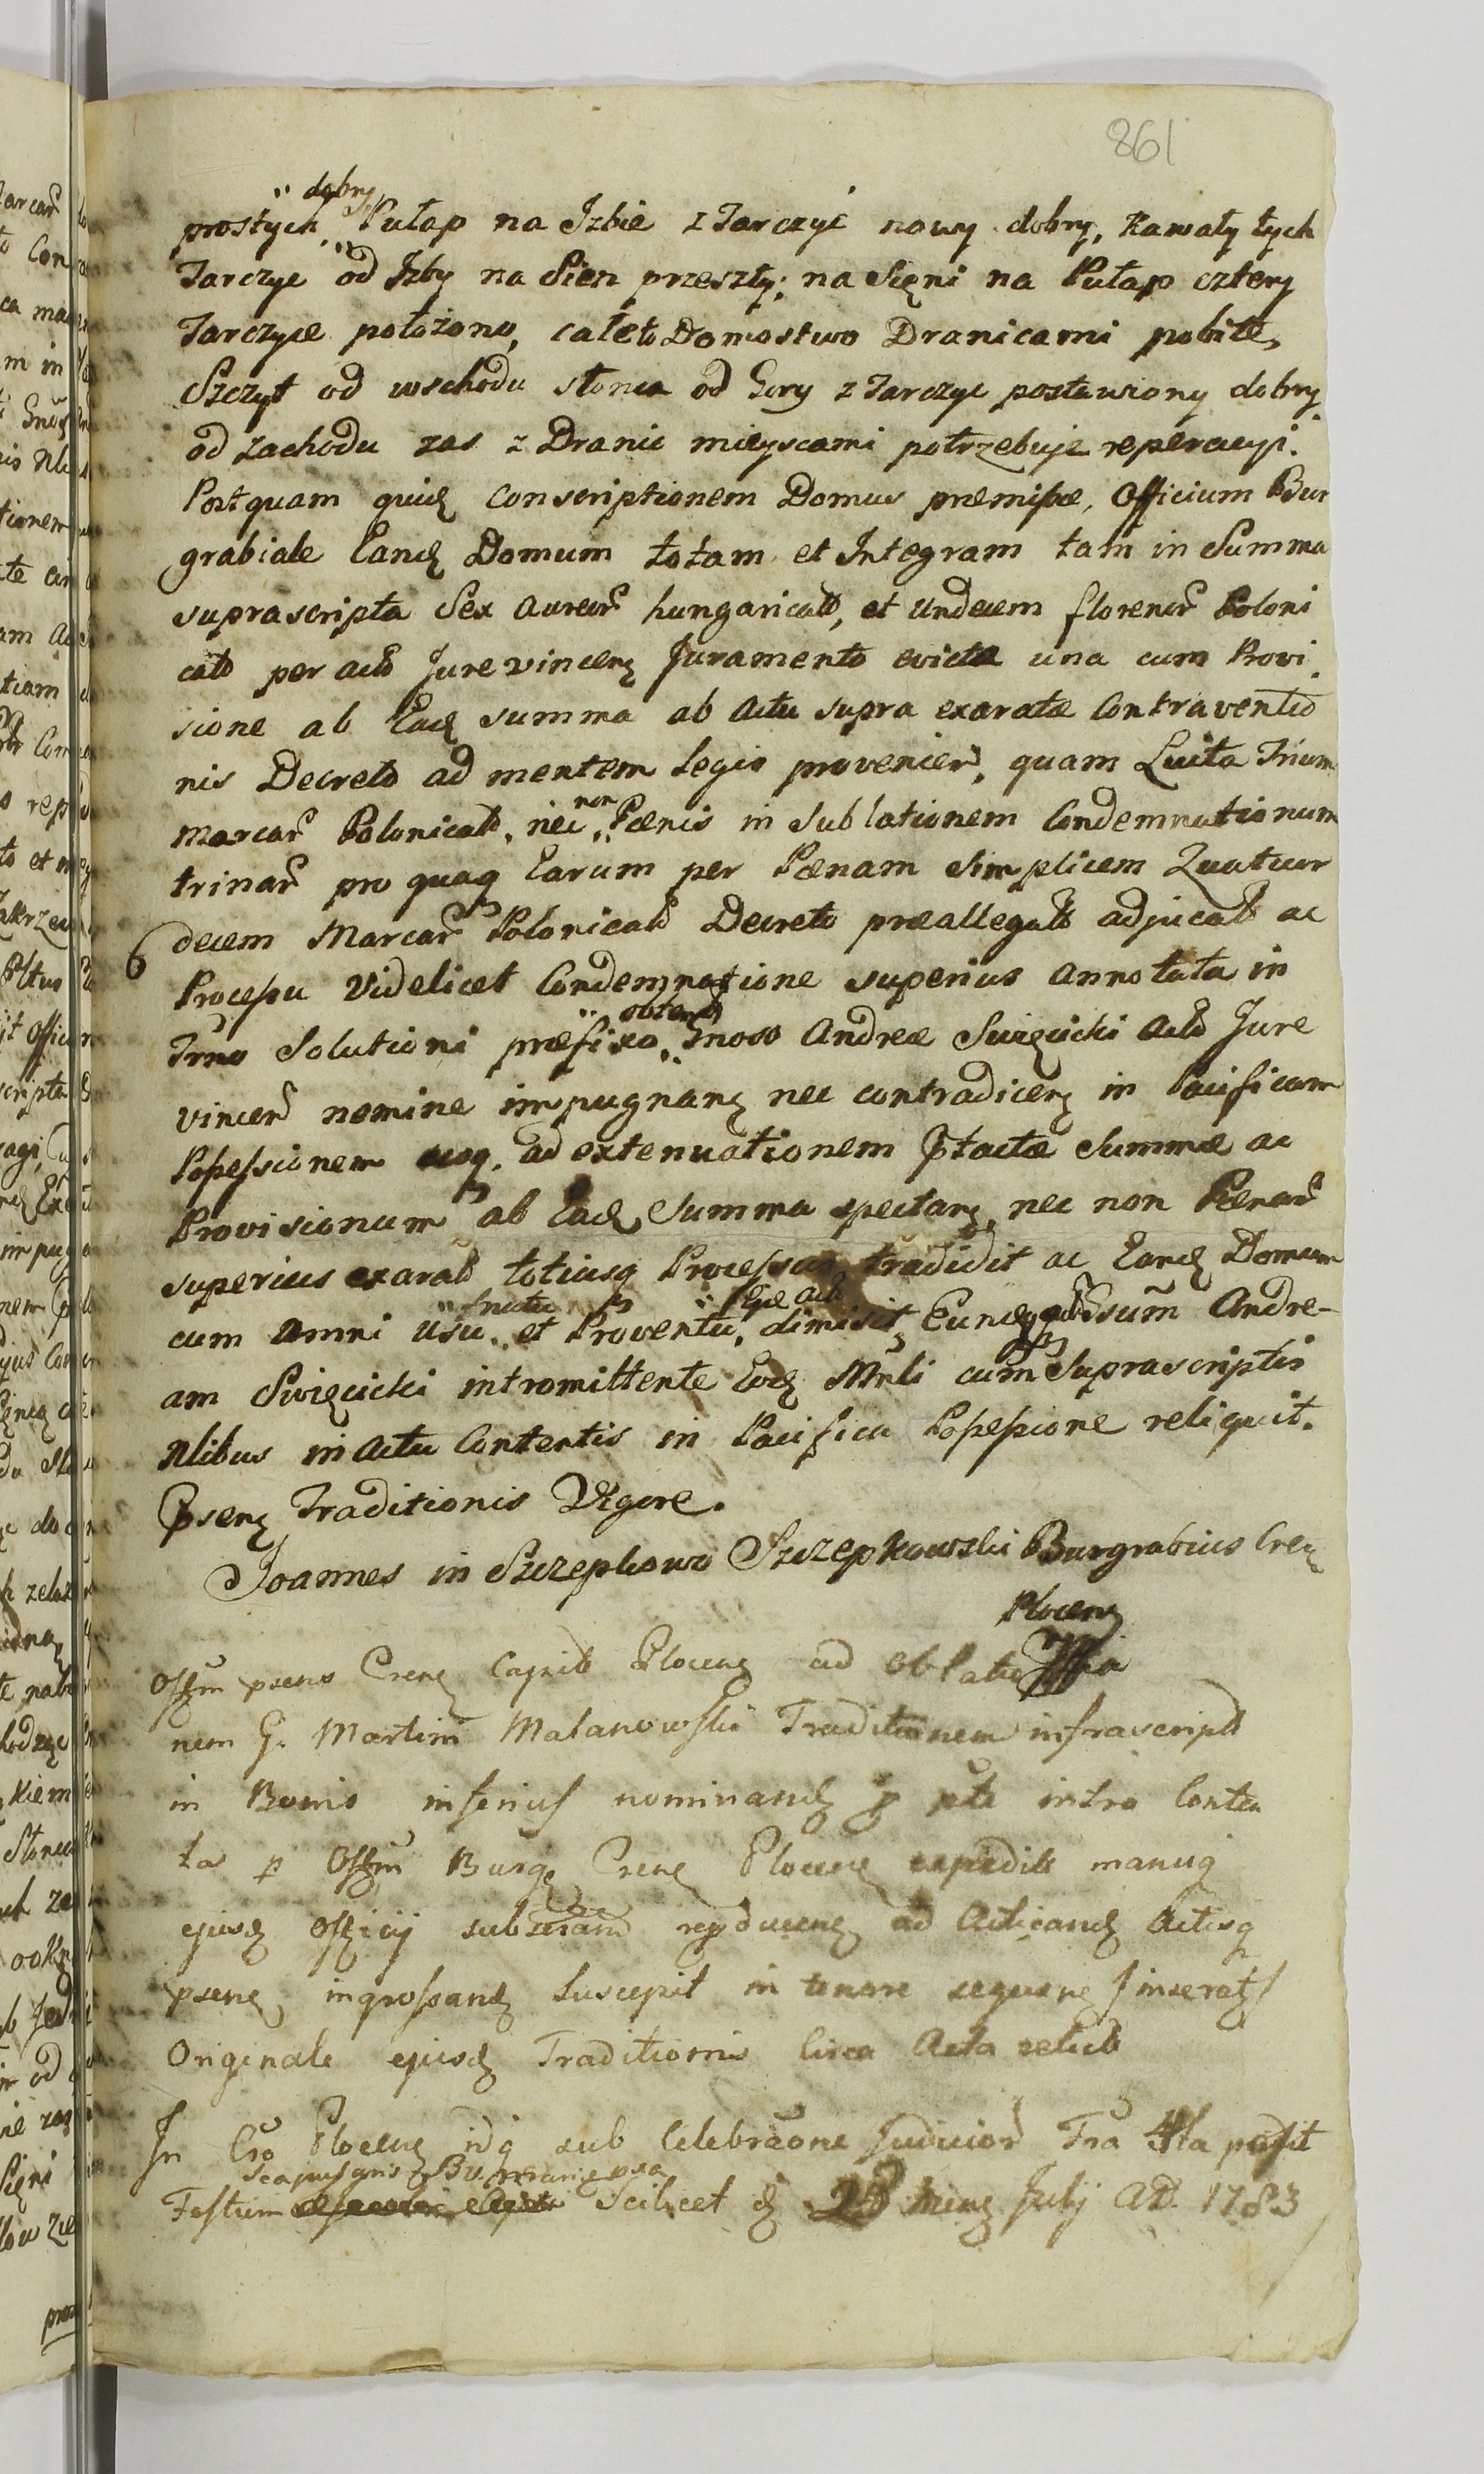 861
prostych, dobry, Pułap na Izbie z Tarczyć nowy dobry, Kawały tych
Tarczyc od Izby na Sien przeszły; na Sięni na Pułap cztery
Tarczyce położono, całe to Domostwo Dranicami pobite,
Szczyt od wschodu słonca od Gory z Tarczyc postawiony dobry
od Zachodu zas z Dranic mieyscami potrzebuje reperacyi.
Postquam quid Conscriptionem Domus præmissæ, Officium Bur
grabiale Eand Domum totam et Integram tam in Summa
suprascripta Sex aureor hungaricalt, et Undecem florenor Poloni
calt per act Jurevincen Juramento evicta una cum Provi
sione ab Ead summa ab actu supra exaratæ Contraventio
nis Decreto ad mentem legis provenien, quam Luita Trium
Marcar Polonicalt, nec non Pœnis in sublationem Condemnationum
trinar pro quaq Earum per Pœnam simplicem Quatuor
decem Marcar Polonicalt Decreto præallegato adjucat ac
6
Processu Videlicet Condemnatione superius annotata in
Trno Solutioni præfixo, obtent Gnoso Andreæ Swięcicki act Jure
vincen nomine impugnan nec contradicen in Pacificam
Possessionem usq. ad extenuationem ptactæ Summæ ac
Provisionum ab Ead Summa spectan, nec non Pœnar
superius exarat totiusq Processus tradidit ac Eand Domum
cum omni usu, fructu et Proventu, dimisit Eund Gnosum Andre-
am Swięcicki intromittente Eod Mnli cum Suprascriptis
Nlibus in actu Contentis in Pacifica Possessione reliquit.
Psen Traditionis Vigore.
Joannes in Szczepkowo Szczepkowski Burgrabius Cren
Plocen
Offm psens Cren Capit Plocen ad oblatu
nem G. Martini Malanowski Traditionem infrascript
in Bonis inferius nominand p pte intro Conten
ta p Offm Burg Cren Plocen expedit manuq
ejusd Officij subscript reproducen ad Acticand Actisq
psen ingrossand suscepit in tenore sequen /inserat/
Originale ejusd Traditionis circa Acta relict
In Cro Plocen idq sub Celebraone Judicior Fra 4ta post
Festum Scapulgris B.V. Mariæ pxa Scilicet d 23 Mens Julij AD. 1783